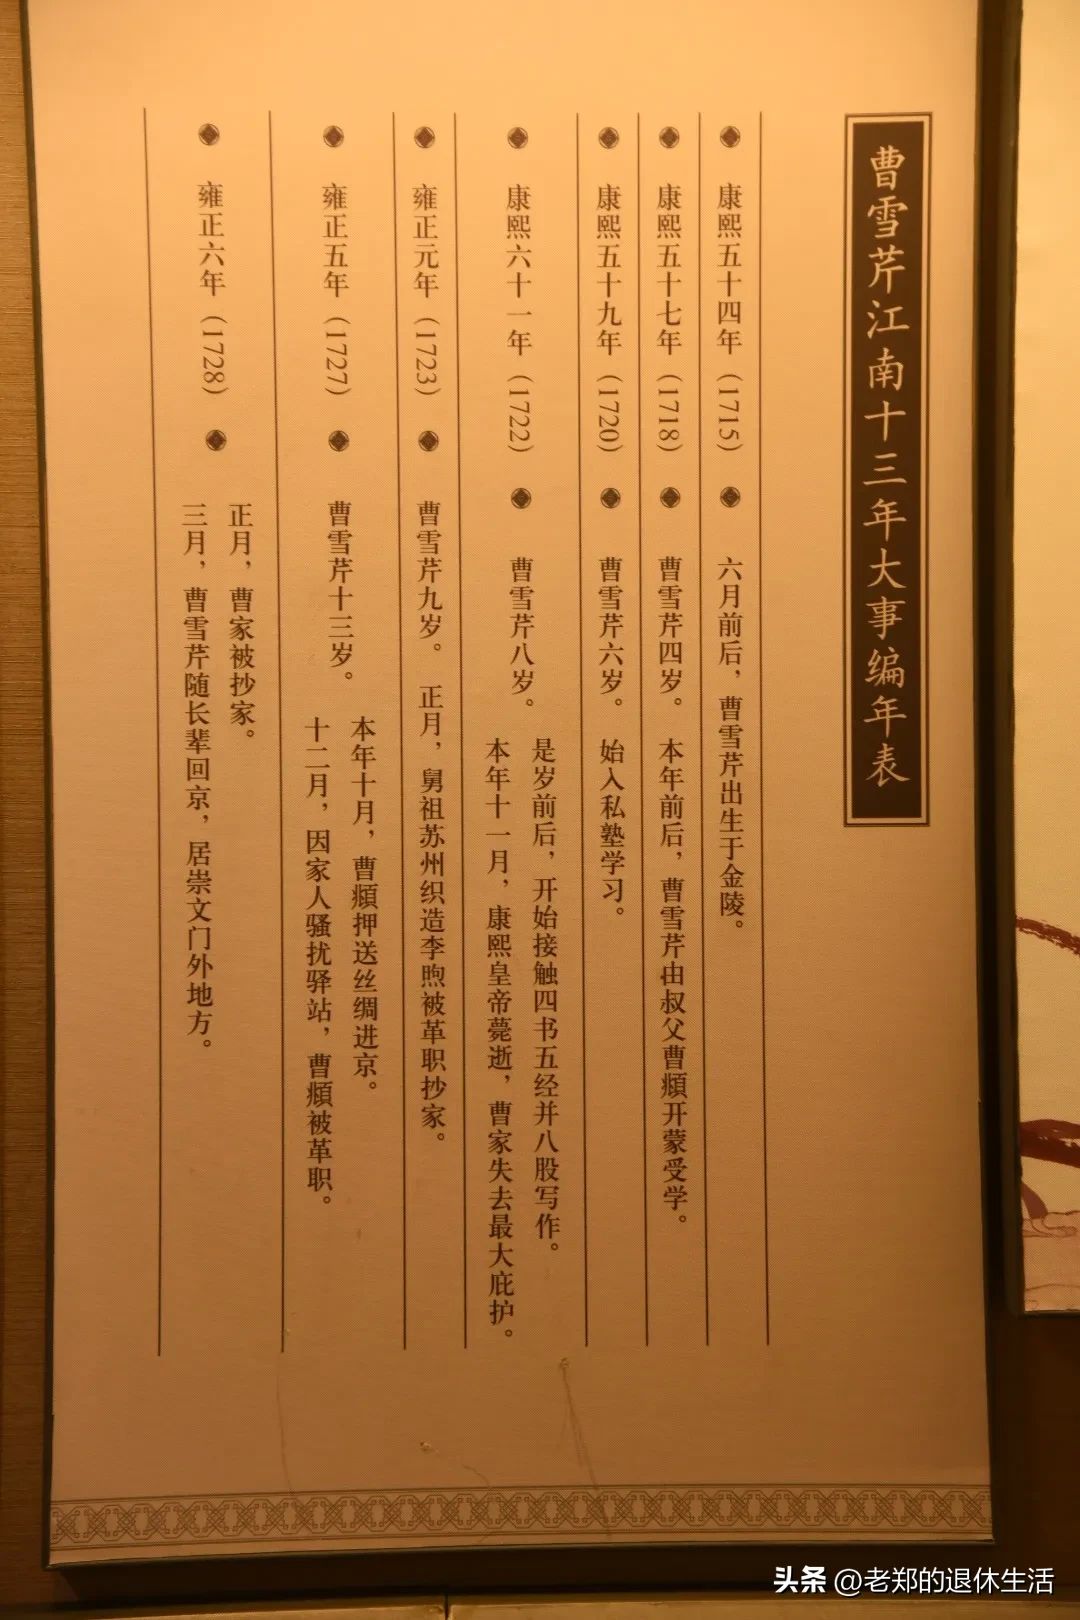 曹雪芹江南十三年大事编年表
康熙五十四年（1715） 六月前后，曹雪芹出生于金陵。
康熙五十七年（1718） 曹雪芹四岁。 本年前后，曹雪芹由叔父曹頫开蒙受学。
康熙五十九年（1720） 曹雪芹六岁。 始入私塾学习。
康熙六十一年（1722） 曹雪芹八岁。
是岁前后，开始接触四书五经并八股写作。
本年十一月，康熙皇帝薨逝，曹家失去最大庇护。
雍正元年（1723） 曹雪芹九岁。 正月，舅祖苏州织造李煦被革职抄家。
雍正五年（1727） 曹雪芹十三岁。
本年十月，曹頫押送丝绸进京。
十二月，因家人骚扰驿站，曹頫被革职。
雍正六年（1728）
正月，曹家被抄家。
三月，曹雪芹随长辈回京，居崇文门外地方。
头条 @老郑的退休生活